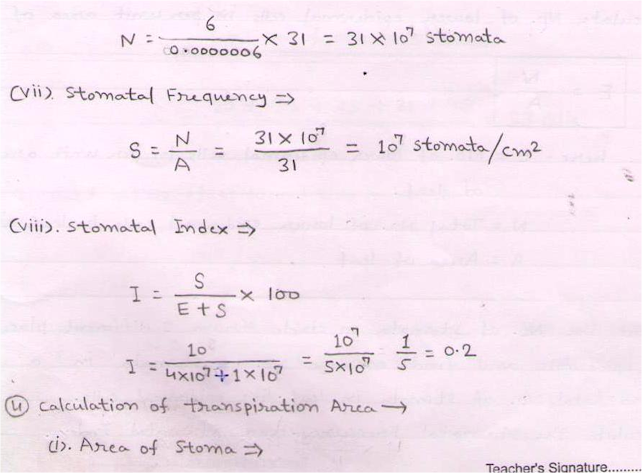 N = 6/0.0000006 × 31 = 31 × 10⁷ stomata
(vii). Stomatal Frequency ⇒
S = N/A = 31 × 10⁷/31 = 10⁷ stomata/cm²
(viii). Stomatal Index ⇒
I = S/E + S × 100
I = 10/4×10⁷ + 1×10⁷ = 10⁷/5×10⁷ 1/5 = 0.2
(4) Calculation of transpiration Area →
(i). Area of Stoma ⇒
Teacher's Signature.........